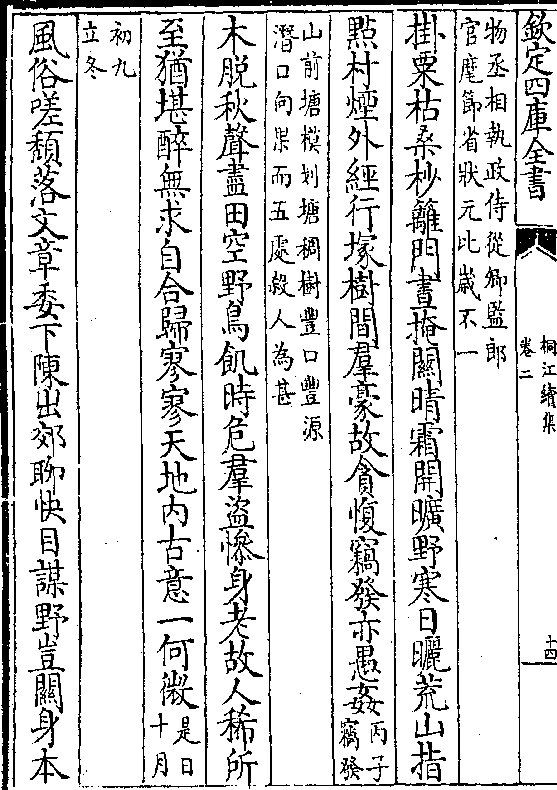 欽定四庫全書
桐江續集
卷二
十四
物丞相執政侍從卿監郎
官麾節省狀元比歲不一
掛粟枯桑杪籬門晝掩關晴霜開曠野寒日曬荒山指
點村煙外經行塚樹間羣豪故貪愎竊發亦愚姦丙子
竊發
山前塘模刬塘稠樹豐口豐源
潛口向杲而五處殺人為甚
木脫秋聲盡田空野鳥飢時危羣盜慘身老故人稀所
至猶堪醉無求自合歸寥寥天地内古意一何微是日
十月
初九
立冬
風俗嗟頽落文章委下陳出郊聊快目謀野豈關身本